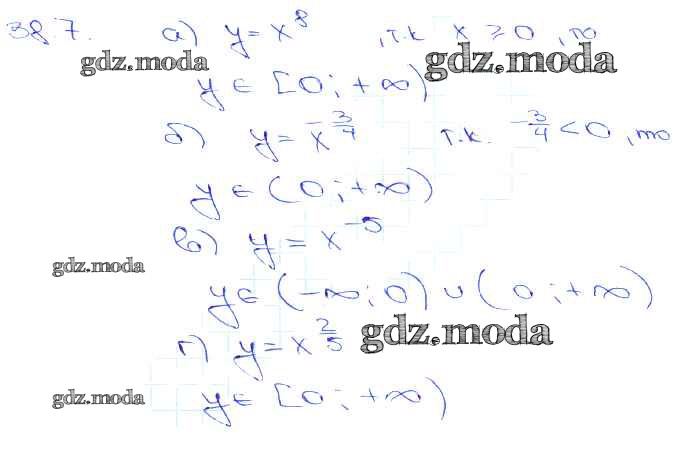 38.7. а) y = x⁸ , т.к x ≥ 0 , то
gdz.moda gdz.moda
y ∈ [0; +∞)
б) y = x^(-3/4) т.к. -3/4 < 0 , то
y ∈ (0; +∞)
в) y = x⁻⁵
gdz.moda
y ∈ (-∞; 0) ∪ (0; +∞)
г) y = x^(2/5) gdz.moda
gdz.moda y ∈ [0; +∞)